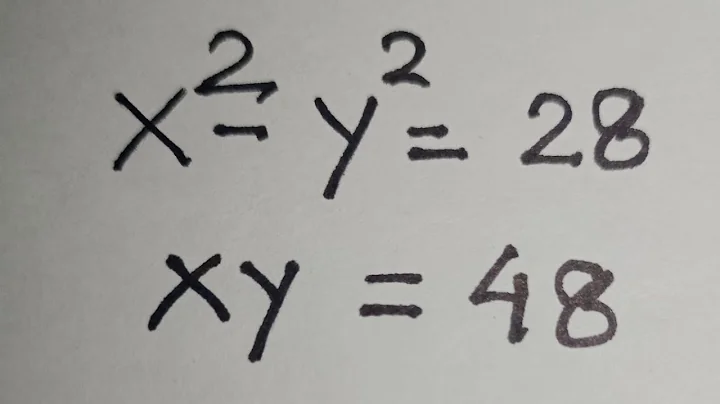 x² - y² = 28
xy = 48